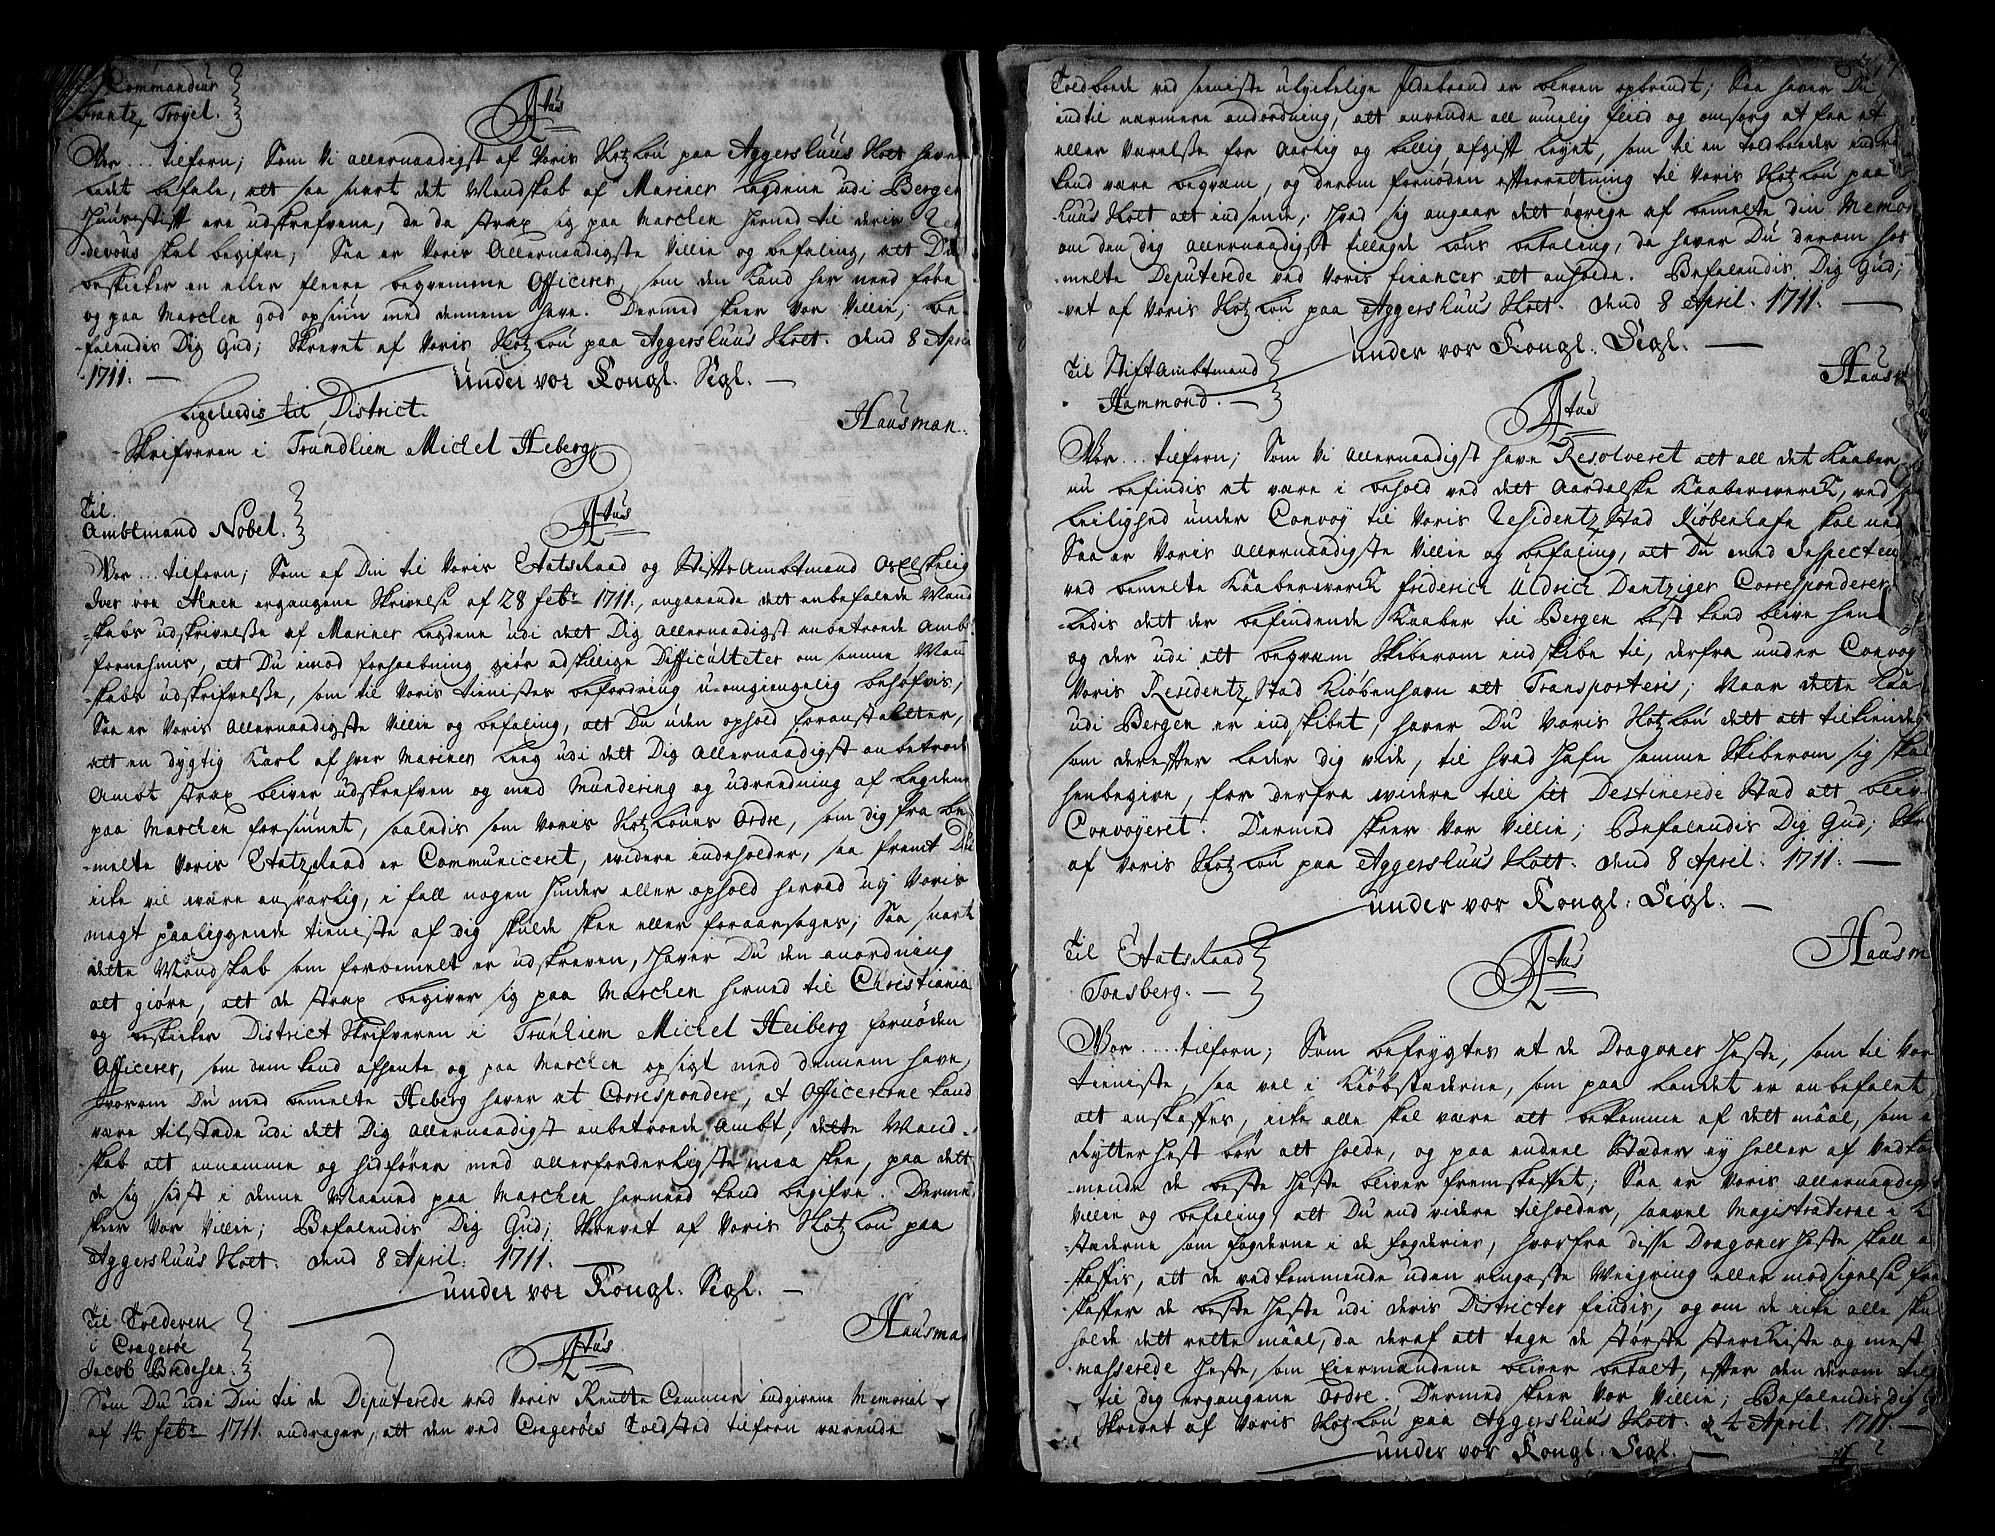 Commandeur
Frantz Tröyel.
F 4tus
Vor... tilforn; Som Vi allernaadigst af Voris SlotzLou paa Aggershuus Slott haver
ladet befale, att saa snart det Mandskab af Mariner Legderne udi Bergen
Huusstift ere udskrefvene, de da strax sig paa Marchen herned til deris Ren
-devous skal begifve; Saa er Voris Allernaadigste Villie og befaling, att Du
beskicker en eller fleere beqvemme Officerer, som dem kand her need føre
og paa Marchen god opsiun med dennem have. Dermed skeer Vor Villie; be-
-falendis Dig Gud; Skrevet af Voris SlotzLou paa Aggershuus Slott. dend 8 April
1711. — under vor Kongl. Segl. —
Ligeledis til District
Hausman.
Skrifveren i Trundhiem Michel Heberg
Til
Ambtmand Nobel.
F 4tus
Vor... tilforn; Som af Din til Voris Etatsraad og StiftsAmbtmand Os Elskelig
Iver von Ahnen ergangene Skrivelse af 28 febr: 1711, angaaende det anbefalede Mand
-skabs udskrivelse af Mariner Legderne udi dett Dig Allernaadigst anbetroede Ambt
fornehmes, att Du imod forhaabning giør adskillige Difficulteter om samme Man
-skabs udskrifvelse, som til Voris tienistes befordring u-omgiengelig behøfvis,
Saa er Voris Allernaadigste Villie og befaling, att Du uden ophold foranstalter,
att en dygtig Karl af hver Mariner Læg udi dett Dig Allernaadigst anbetroede
Ambt strax bliver udskrefven og med Mundering og udreedning af Legderne
paa Marchen forsiunet, saaledis som Voris SlotzLoues Ordre, som dig fra be
-melte Voris Etatzraad er Communiceret, videre indeholder, saa fremt Du
icke vil være ansvarlig, i fall nogen hinder eller ophold herved udj Voris
magt paaliggende tieniste af dig skulde skee eller foraarsages; Saa snart
dette Mandskab som forbemelt er udskreven, haver Du den anordning
att giøre, att de strax begiver sig paa Marchen herned til Christiania
og beskicker District Skrifveren i Trunhiem Michel Heiberg fornøden
Officerer, som dem kand afhente og paa Marchen opsigt med dennem have,
hvorom Du med bemelte Heberg haver at Correspondere, at Officererne kand
være tilstæde udi dett Dig Allernaadigst anbetroede Ambt, dette Mand-
-skab att annamme og hidføre med allerforderligste maa skee, paa dett
de sig sidst i denne Maaned paa Marchen herneed kand begifve. Dermed
skeer Vor Villie; Befalendis Dig Gud; Skrevet af Voris SlotzLou paa
Aggershuus Slott. dend 8 April. 1711.
under vor Kongl. Segl. —
Til Tolderen
i Cragerøe
Jacob Bredesen.
Hausman
F 4tus
Som Du udi Din til de Deputerede ved Vores Rentte Cammer indgivene Memorial
af 14 febr: 1711. andrager, att den ved Cragerøes Toldsted tilforn værende
Toldboede ved seeniste ulyckelige Ildebrand er bleven opbrendt; Saa haver Du
indtil nærmere andordning, att anvende all muelig fliid og omsorg at faa et
eller Værelse for Aarlig og billig afgift leyet, som til en Toldboeder
kand være beqvem, og derom fornøden efterretning til Voris SlotzLou paa
-huus Slott att indsende; Hvad sig angaar dett øvrige af bemelte din Memor
om den dig allernaadigst tillagde befaling, da haver Du derom hos
-melte Deputerede ved Voris financer att anholde. Befalendis Dig Gud;
-vet af Voris SlotzLou paa Aggershuus Slott. dend 8 April. 1711. —
under vor Kongl. Segl. —
Til StiftAmbtmand
Hammond. —
Hausm
F 4tus
Vor... tilforn; Som Vi allernaadigst have Resolveret att all det Kaaber
nu befindis at være i behold ved det Aardalske Kaaberverck, ved
Leilighed under Convoy til Voris Residentz Stad Kiøbenhafn skal ned
Saa er Voris allernaadigste Villie og befaling, att Du med Inspecteur
ved bemelte Kaaberverck Friderich Uldrich Dentziger Corresponderer
-ledis dett der befindende Kaaber til Bergen best kand blive hen
og der udi att beqvem Skiberom indskibe til, derfra under Convoy
Voris Residentz Stad Kiøbenhavn att Transporteris; Naar dette Kaa
udi Bergen er indskibet, haver Du Voris SlotzLou dett att tilkiende
som derefter lader dig vide, til hvad Hafn samme Skiberom sig skal
henbegive, for derfra videre till sit Destinerede Stad att bliv
Convoyeret. Dermed skeer Vor Villie; Befalendis Dig Gud; Skre
af Voris SlotzLou paa Aggershuus Slott. dend 8 April. 1711. —
under vor Kongl. Segl. —
Til Etatsraad
Tonsberg. —
Hausm
F 4tus
Vor.... tilforn; Som befrygtes at de Dragoner Heste, som til Vor
tieniste, saa vel i Kiøbstæderne, som paa Landet er anbefalet
att anskaffes, icke alle skal være att bekomme af det maal, som
Rytter Hest bør att holde, og paa endeel Stæder ey heller af vedkom
-mende de beste Heste bliver fremskaffet; Saa er Voris allernaadigst
Villie og befaling, att Du end videre tilholder, saavel Magistraterne i
-stæderne som fogderne i de fogderier, hvorfra disse Dragoner Heste skall
-skaffis, att de vedkommende uden ringeste Weigring eller modsigelse fre
-skaffer de beste Heste udi deris Districter findis, og om de icke alle skul
holde dett rette maal, da deraf att tage de største sterckiste og mest
-masserede Heste, som Eiermændene bliver betalt, efter den derom til
til dig ergangene Ordre. Dermed skeer Vor Villie; Befalendis Dig
Skrevet af Voris SlotzLou paa Aggershuus Slott. d. 4 April. 1711. —
under vor Kongl. Segl. —
H